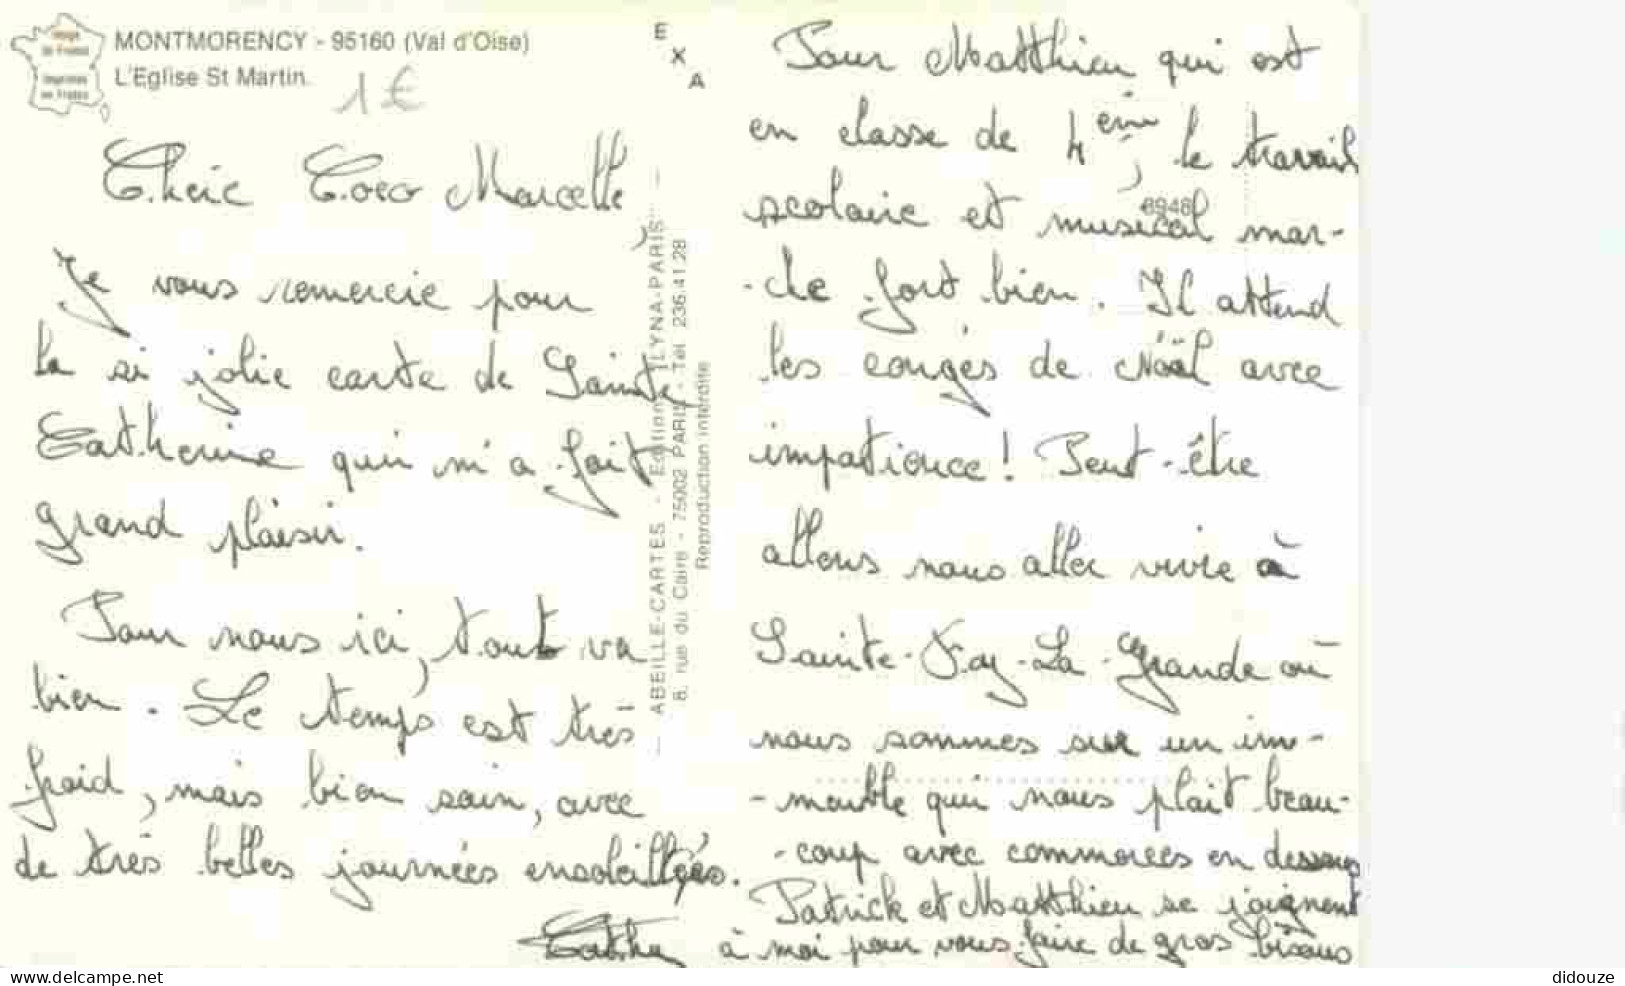 MONTMORENCY - 95160 (Val d'Oise)
L'Eglise St Martin.
1 €
E
X
A
Chère Coco Marcelle,
Je vous remercie pour
la si jolie carte de Sainte
Catherine qui m'a fait
grand plaisir.
Pour nous ici, tout va
bien. Le temps est très
froid, mais bien sain, avec
de très belles journées ensoleillées.
ABEILLE-CARTES - Edition "LYNA-PARIS"
8, rue du Caire - 75002 PARIS - Tél. 236.41.28
Reproduction interdite
Pour Matthieu qui est
en classe de 4ème, le travail
scolaire et musical mar-
-che fort bien. Il attend
les congés de Noël avec
impatience ! Peut-être
allons nous aller vivre à
Sainte-Foy-La-Grande où
nous sommes sur un im-
-meuble qui nous plaît beau-
-coup avec commerces en dessous
Patrick et Matthieu se joignent
à moi pour vous faire de gros bisous
Cathy
8948
didouze
delcampe.net